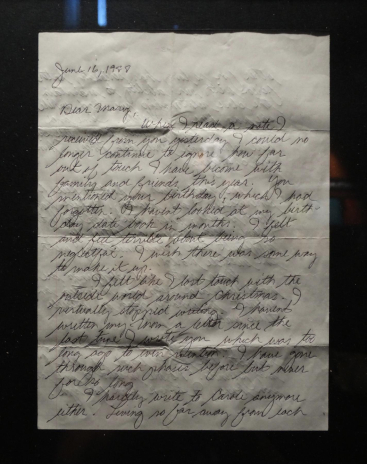 June 16, 1988
Dear Mary,
When I read a note I
received from you yesterday I could no
longer continue to ignore how far
out of touch I have become with
family and friends this year. You
mentioned your birthday, which I had
forgotten. I haven't looked at my birth-
day date book in months. I felt
and feel terrible about being so
neglectful. I wish there was some way
to make it up.
I felt like I lost touch with the
outside world around Christmas. I
partially stopped writing. I haven't
written my Mom a letter since the
last time I wrote you which was to
long ago to even mention. I have gone
through such phases before but never
for so long.
I hardly write to Carole anymore
either. Living so far away from each